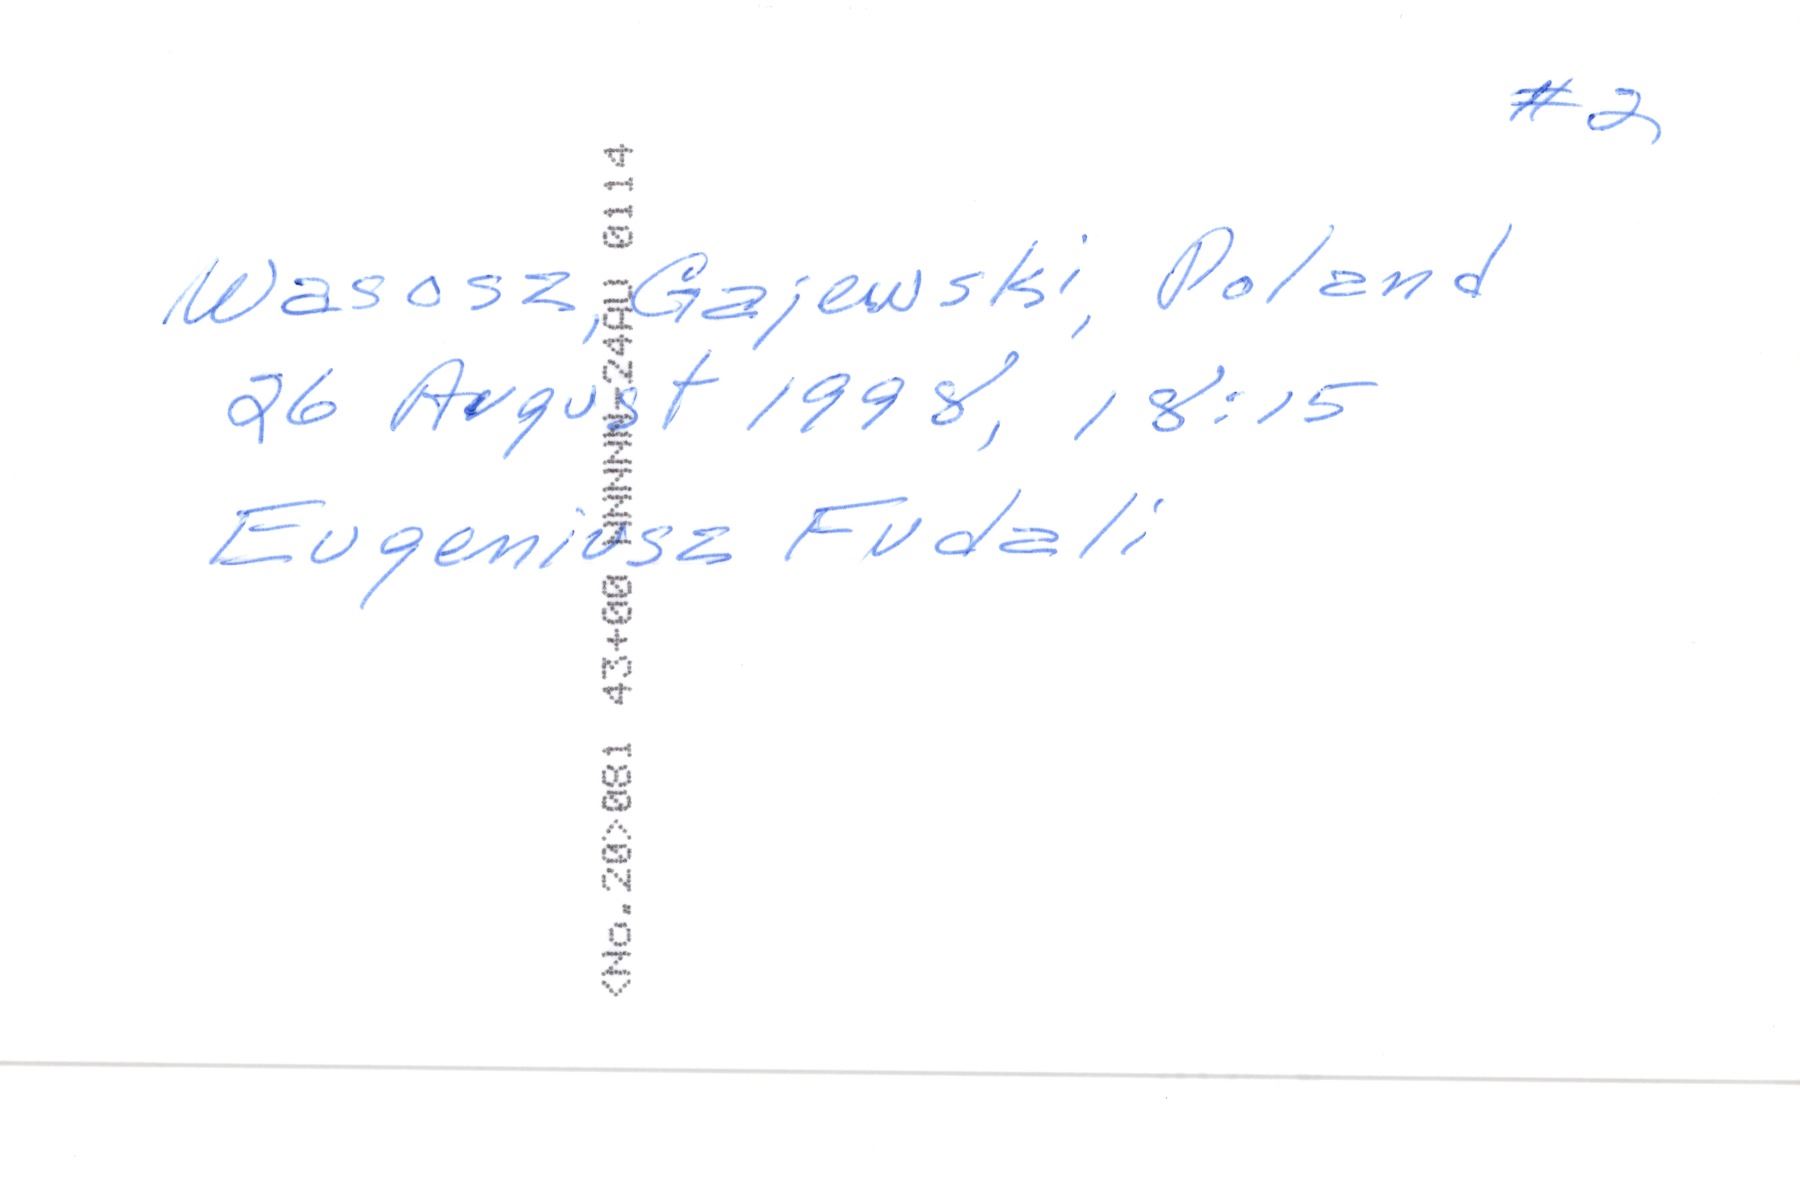 #2
Wasosz, Gajewski, Poland
26 August 1998, 18:15
Eugeniusz Fudali
<No.20>081 43+00 NNNN-24AU 0114